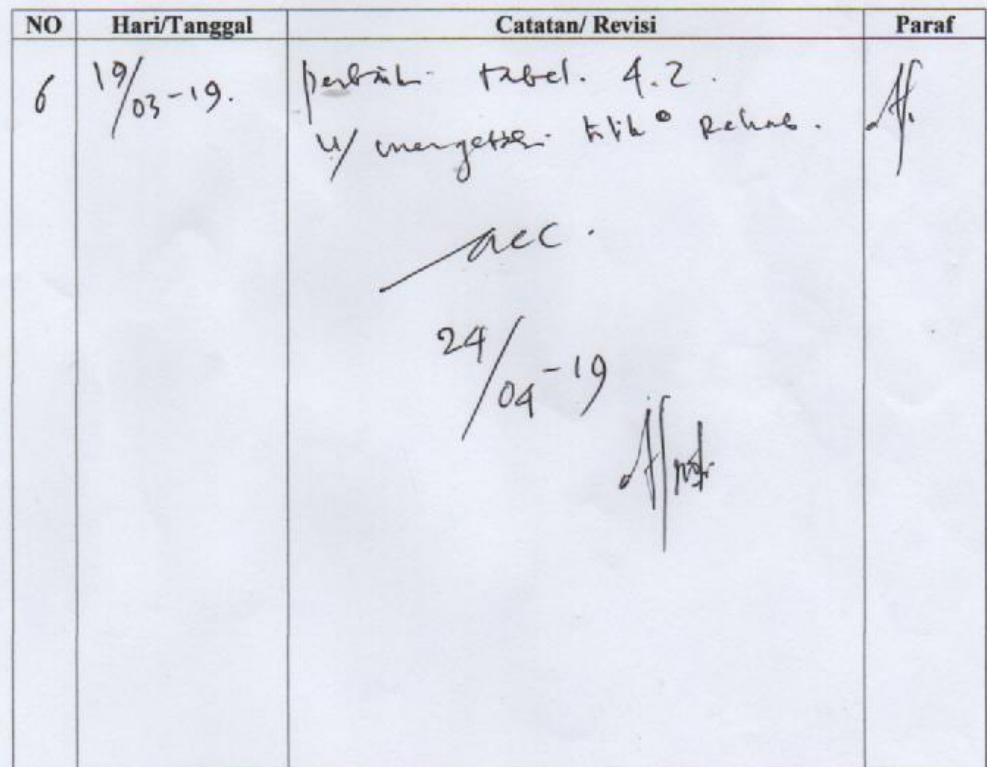 NO Hari/Tanggal Catatan/ Revisi Paraf
6 19/03-19. perbaiki tabel. 4.2.
u/ mengetahui titik°
acc.
24/04-19